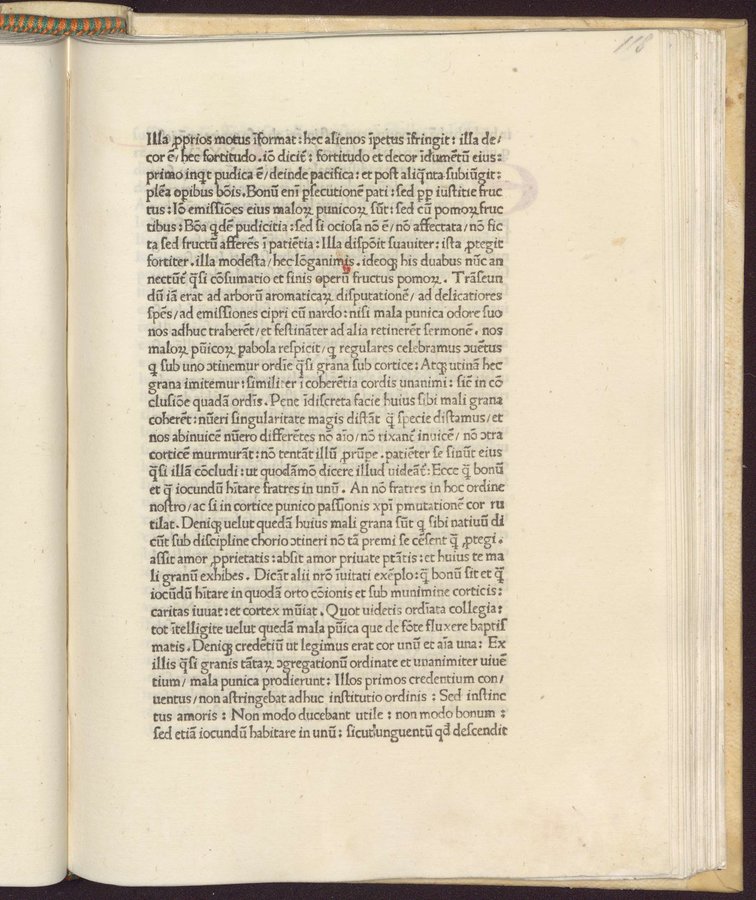 118
Illa ꝓprios motus ĩformat : hec alienos ĩpetus ĩfringit : illa de/
cor ē/ hec fortitudo . iō dicit̃ : fortitudo et decor ĩdumẽtũ eius :
primo inqt pudica ē/ deinde pacifica : et post aliq̃nta subiũgit :
plẽa opibus bõis . Bonũ eni ꝑsecutionẽ pati : sed pp̱ iustitie fruc
tus : Iõ emissiões eius maloꝝ punicoꝝ sũt : sed cũ pomoꝝ fruc
tibus : Bõa qdẽ pudicitia : sed si ociosa nõ ē/ nõ affectata/ nõ fic
ta sed fructũ afferẽs ĩ patiẽtia : Illa dispõit suauiter : ista ꝓtegit
fortiter . illa modesta/ hec lõganimis . ideoqꝫ his duabus nũc an
nectũt̃ q̃si cõsumatio et finis operũ fructus pomoꝝ . Trãseun
dũ iã erat ad arborũ aromaticaꝝ disputationẽ/ ad delicatiores
spẽs/ ad emissiones cipri cũ nardo : nisi mala punica odore suo
nos adhuc traherẽt/ et festinãter ad alia retinerẽt sermonẽ . nos
maloꝝ pũicoꝝ pabola respicit/ q regulares celebramus ↄuẽtus
q sub uno ↄtinemur ordĩe q̃si grana sub cortice : Atqꝫ utinã hec
grana imitemur : similiter ĩ coherẽtia cordis unanimi : siẽ in cõ
clusiõe quadã ordĩs . Pene ĩdiscreta facie huius sibi mali grana
coherẽt : nũeri singularitate magis distãt q̃ specie distamus/ et
nos abinuicẽ nũero differẽtes nõ aĩo/ nõ rixant̃ inuicẽ/ nõ ↄtra
corticẽ murmurãt : nõ tentãt illũ ꝓrũpe . patiẽter se sinũt eius
q̃si illã cõcludi : ut quodãmõ dicere illud uideãt̃ : Ecce q̃ bonũ
et q̃ iocundũ hĩtare fratres in unũ . An nõ fratres in hoc ordine
nostro/ ac si in cortice punico passionis xp̃i pmutationẽ cor ru
tilat . Deniqꝫ uelut quedã huius mali grana sũt q sibi natiuũ di
cũt sub discipline chorio ↄtineri nõ tã premi se cẽsent q̃ ꝓtegi .
assit amor ꝓprietatis : absit amor priuate ptãtis : et huius te ma
li granũ exhibes . Dicãt alii nrõ ĩuitati exẽplo : q̃ bonũ sit et q̃
iocũdũ hĩtare in quodã orto cõionis et sub munimine corticis :
caritas iuuat : et cortex mũiat . Quot uidetis ordĩata collegia :
tot ĩtelligite uelut quedã mala pũica que de fõte fluxere baptis
matis . Deniqꝫ credẽtiũ ut legimus erat cor unũ et aĩa una : Ex
illis q̃si granis tãtaꝝ ↄgregationũ ordinate et unanimiter uiuẽ
tium/ mala punica prodierunt : Illos primos credentium con/
uentus/ non astringebat adhuc institutio ordinis : Sed instinc
tus amoris : Non modo ducebant utile : non modo bonum :
sed etiã iocundũ habitare in unũ : sicut unguentũ qd̃ descendit